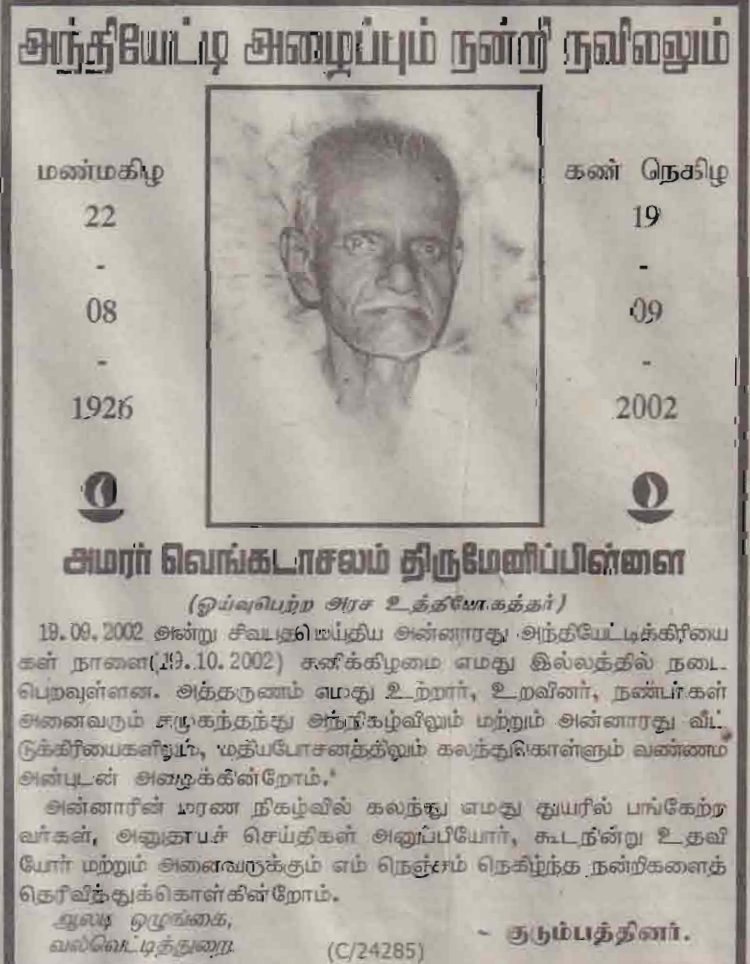 அந்தியேட்டி அழைப்பும் நன்றி நவிலலும்
மண்மகிழ
22
-
08
-
1926
கண் நெகிழ
19
-
09
-
2002
அமரர் வெங்கடாசலம் திருமேனிப்பிள்ளை
(ஓய்வுபெற்ற அரச உத்தியோகத்தர்)
19.09.2002 அன்று சிவபதமெய்திய அன்னாரது அந்தியேட்டிக்கிரியை
கள் நாளை(19.10.2002) சனிக்கிழமை எமது இல்லத்தில் நடை
பெறவுள்ளன. அத்தருணம் எமது உற்றார், உறவினர், நண்பர்கள்
அனைவரும் சமுகந்தந்து அந்நிகழ்விலும் மற்றும் அன்னாரது வீட்
டுக்கிரியைகளிலும், மதியபோசனத்திலும் கலந்துகொள்ளும் வண்ணம்
அன்புடன் அழைக்கின்றோம்.
அன்னாரின் மரண நிகழ்வில் கலந்து எமது துயரில் பங்கேற்ற
வர்கள், அனுதாபச் செய்திகள் அனுப்பியோர், கூடநின்று உதவி
யோர் மற்றும் அனைவருக்கும் எம் நெஞ்சம் நெகிழ்ந்த நன்றிகளைத்
தெரிவித்துக்கொள்கின்றோம்.
ஆலடி ஒழுங்கை,
வல்வெட்டித்துறை.
(C/24285)
- குடும்பத்தினர்.